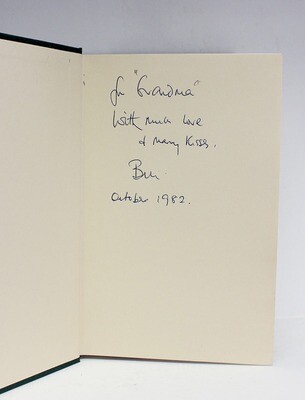 for "Grandma"
With much love
& many kisses.
October 1982.